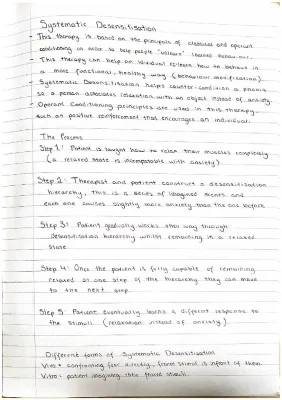 Systematic Desensitisation
This therapy is based on the principals of classical and operant
conditioning in order to help people "unlearn" learned behaviour.
This therapy can help an individual relearn how to behave in
a more functional, healthy way (behaviour modification).
Systematic Desensitisation helps counter-condition a phobia
so a person associates relaxation with an object instead of anxiety.
Operant Conditioning principles are used in this therapy
such as positive reinforcement that encourages an individual.
The Process
Step 1: Patient is taught how to relax their muscles completely
(a relaxed state is incompatable with anxiety)
Step 2: Therapist and patient construct a desensitisation
hierarchy, this is a series of imagined scenes and
each one causes slightly more anxiety than the one before
Step 3: Patient gradually works their way through
desensitisation hierarchy whilst remaining in a relaxed
state
Step 4: Once the patient is fully capable of remaining
relaxed at one step of the hierarchy they can move
to the next step.
Step 5: Patient eventually learns a different response to
the stimuli (relaxation instead of anxiety)
Different forms of Systematic Desensitisation
Vivo = confronting fear directly, feared stimuli is infront of them
Vitro = patient imagines their feared stimuli.